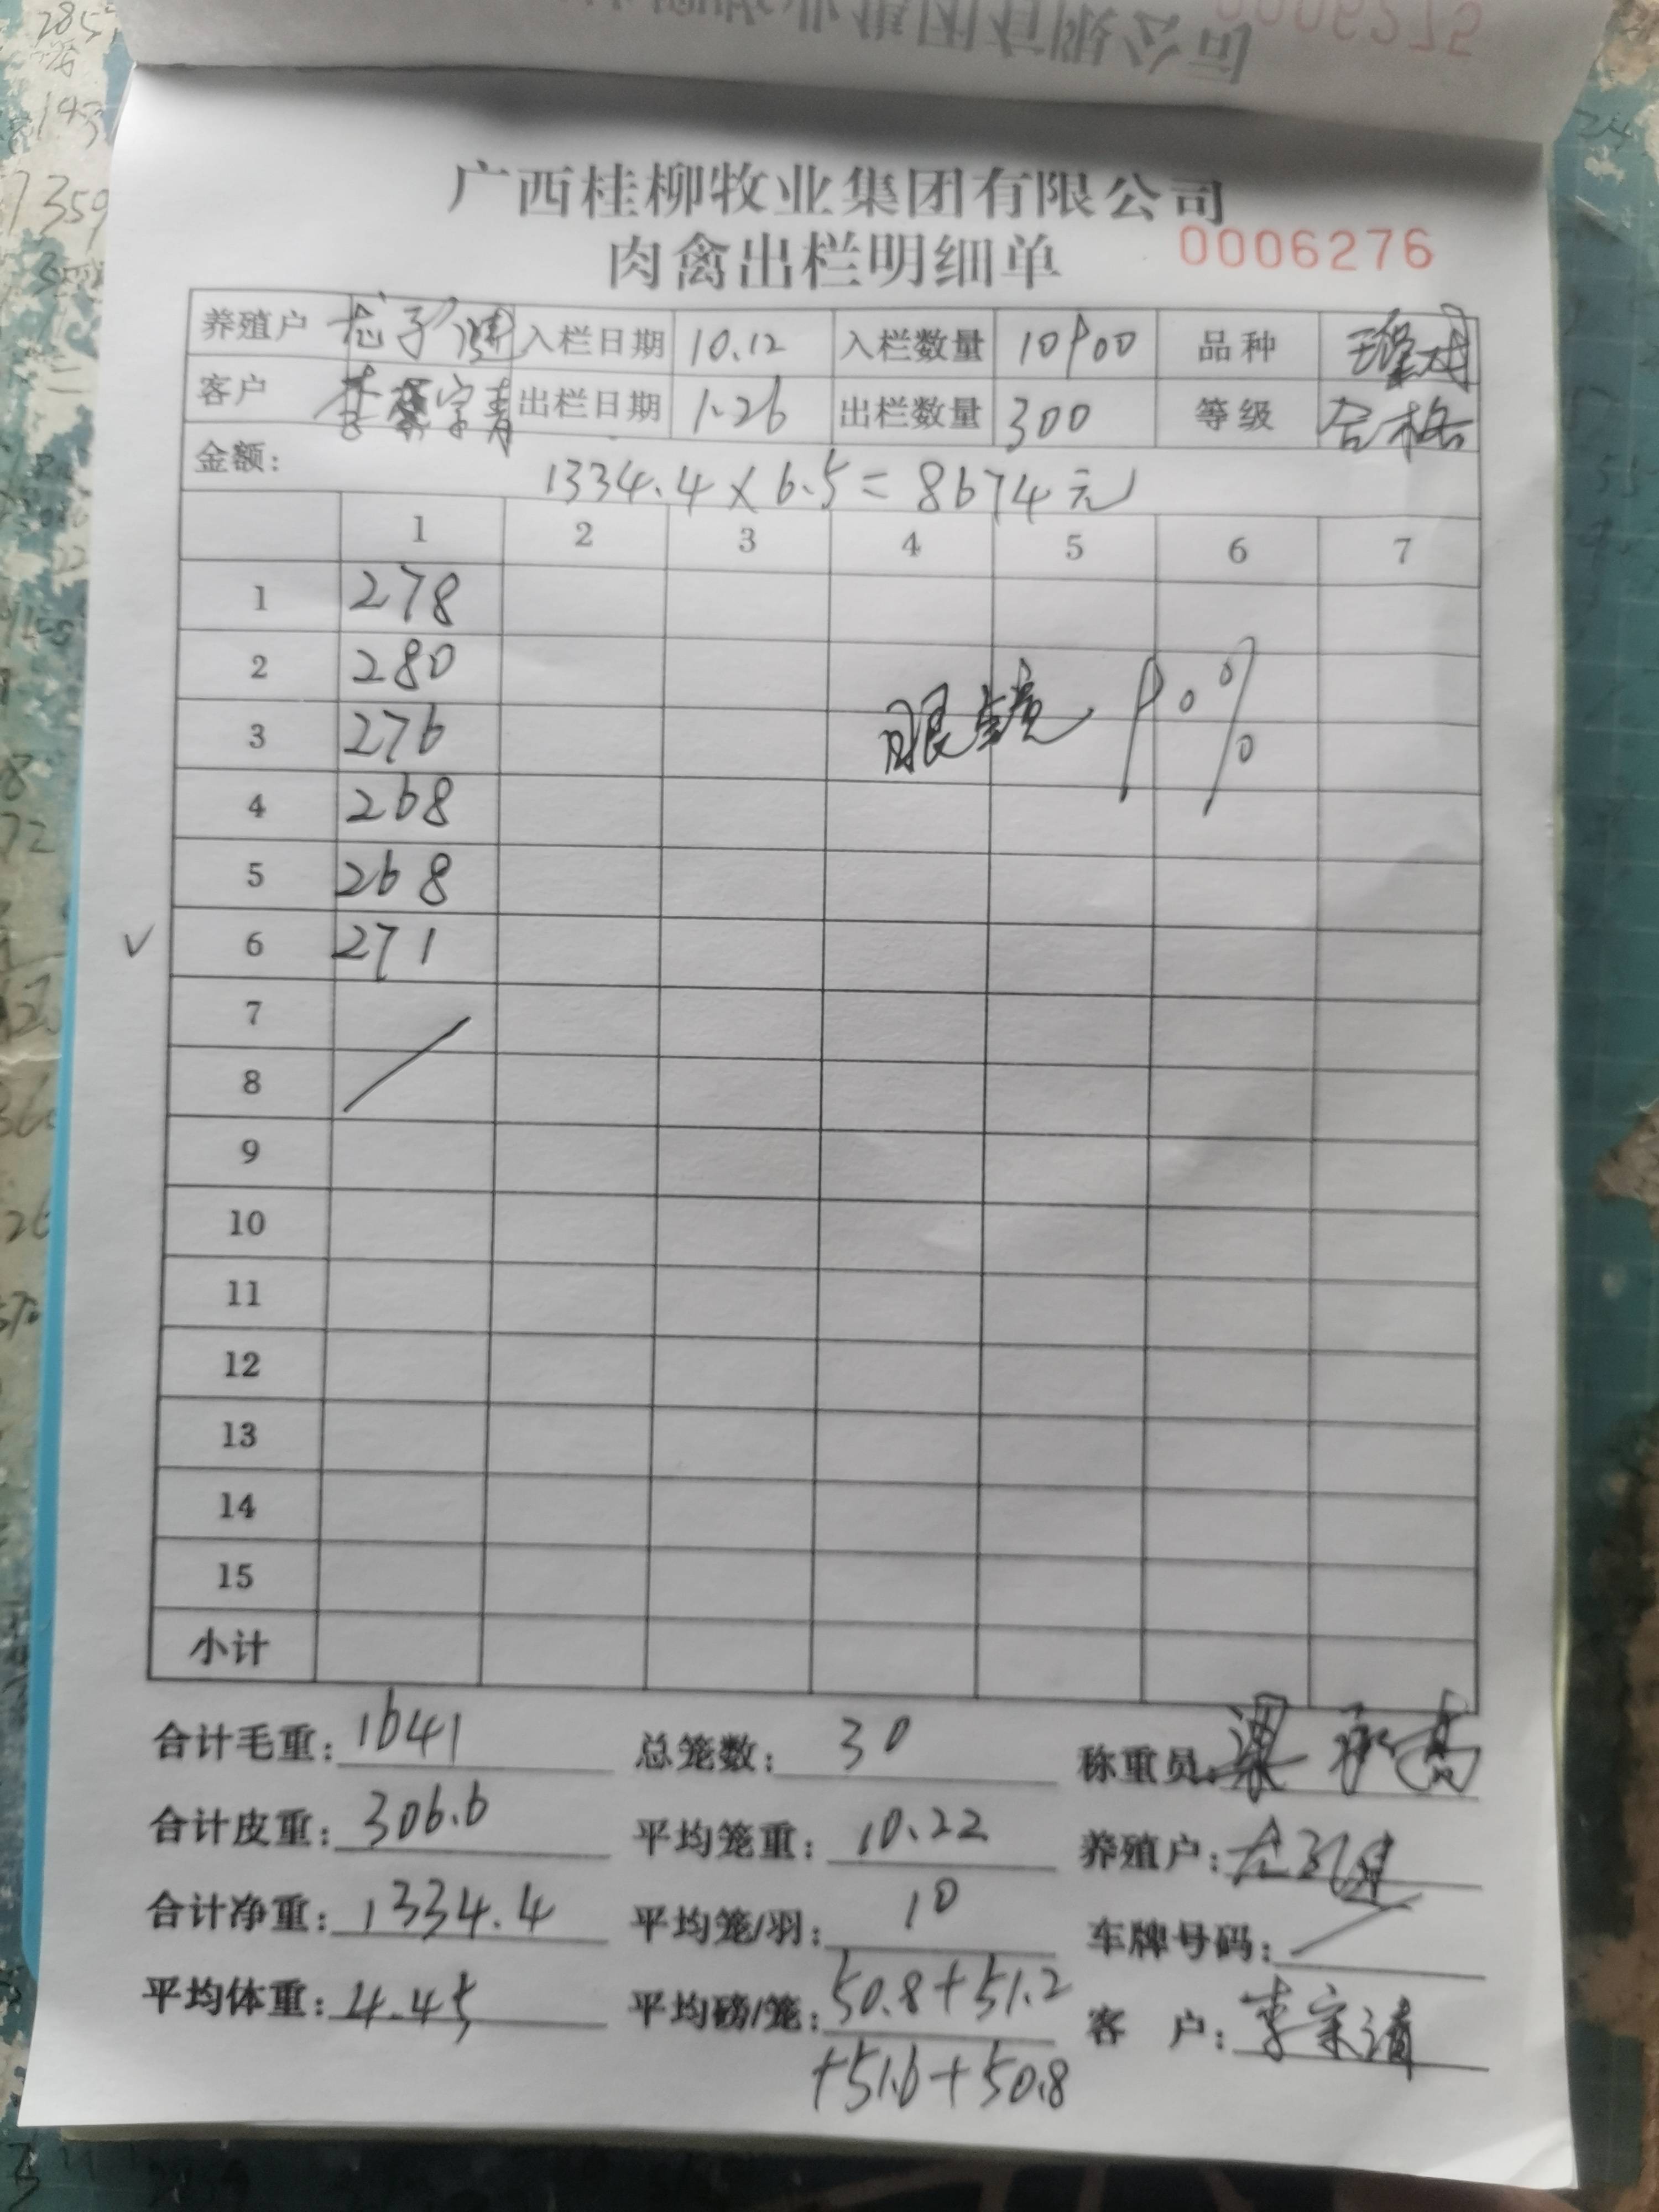 广西桂柳牧业集团有限公司
肉禽出栏明细单 0006276
养殖户 入栏日期 10.12 入栏数量 10900 品种
客户 李 宗青 出栏日期 1.26 出栏数量 300 等级 合格
金额: 1334.4×6.5=8674元
1 2 3 4 5 6 7
1 278
2 280
3 276
眼镜 90%
4 268
5 268
√ 6 271
7
8
9
10
11
12
13
14
15
小计
合计毛重: 1641 总笼数: 30 称重员: 梁
合计皮重: 306.6 平均笼重: 10.22 养殖户:
合计净重: 1334.4 平均笼/羽: 10 车牌号码:
平均体重: 4.45 平均磅/笼: 50.8+51.2 客户: 李宗清
+51.6+50.8